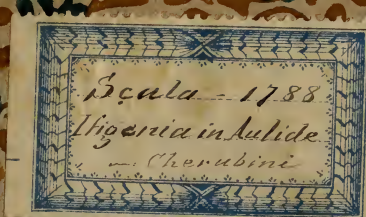 Scala - 1788
Ifigenia in Aulide
Cherubini